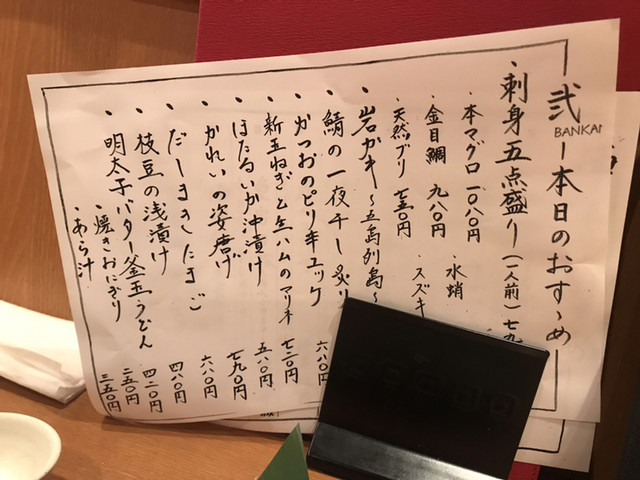 弐
BANKAI
本日のおすゝめ
・刺身五点盛り(一人前)七九
・本マグロ 一〇八〇円
・水蛸
・金目鯛 九八〇円
・スズキ
・天然ブリ 七五〇円
・岩ガキ〜五島列島〜
・鯖の一夜干し炙り 六八〇
・かつおのピリ辛ユック 七二〇円
・新玉ねぎと生ハムのマリネ 五八〇円
・ほたるいか沖漬け 七九〇円
・かれいの姿唐げ 六八〇円
・だしまきたまご 四八〇円
・枝豆の浅漬け 四二〇円
・明太子バター釜玉うどん
・焼きおにぎり 二五〇円
・あら汁 三五〇円